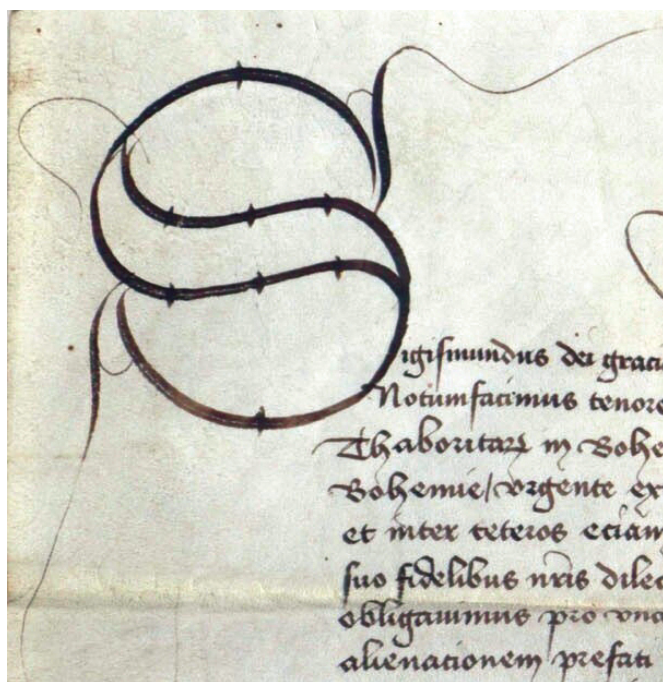 Sigismundus dei graci
Notumfacimus tenore
Thaboritarꝝ in Bohe
Bohemie/ vrgente ex
et inter ceteros eciam
suo fidelibus nr̄is dilec
obligauimus pro vna
alienacionem prefati